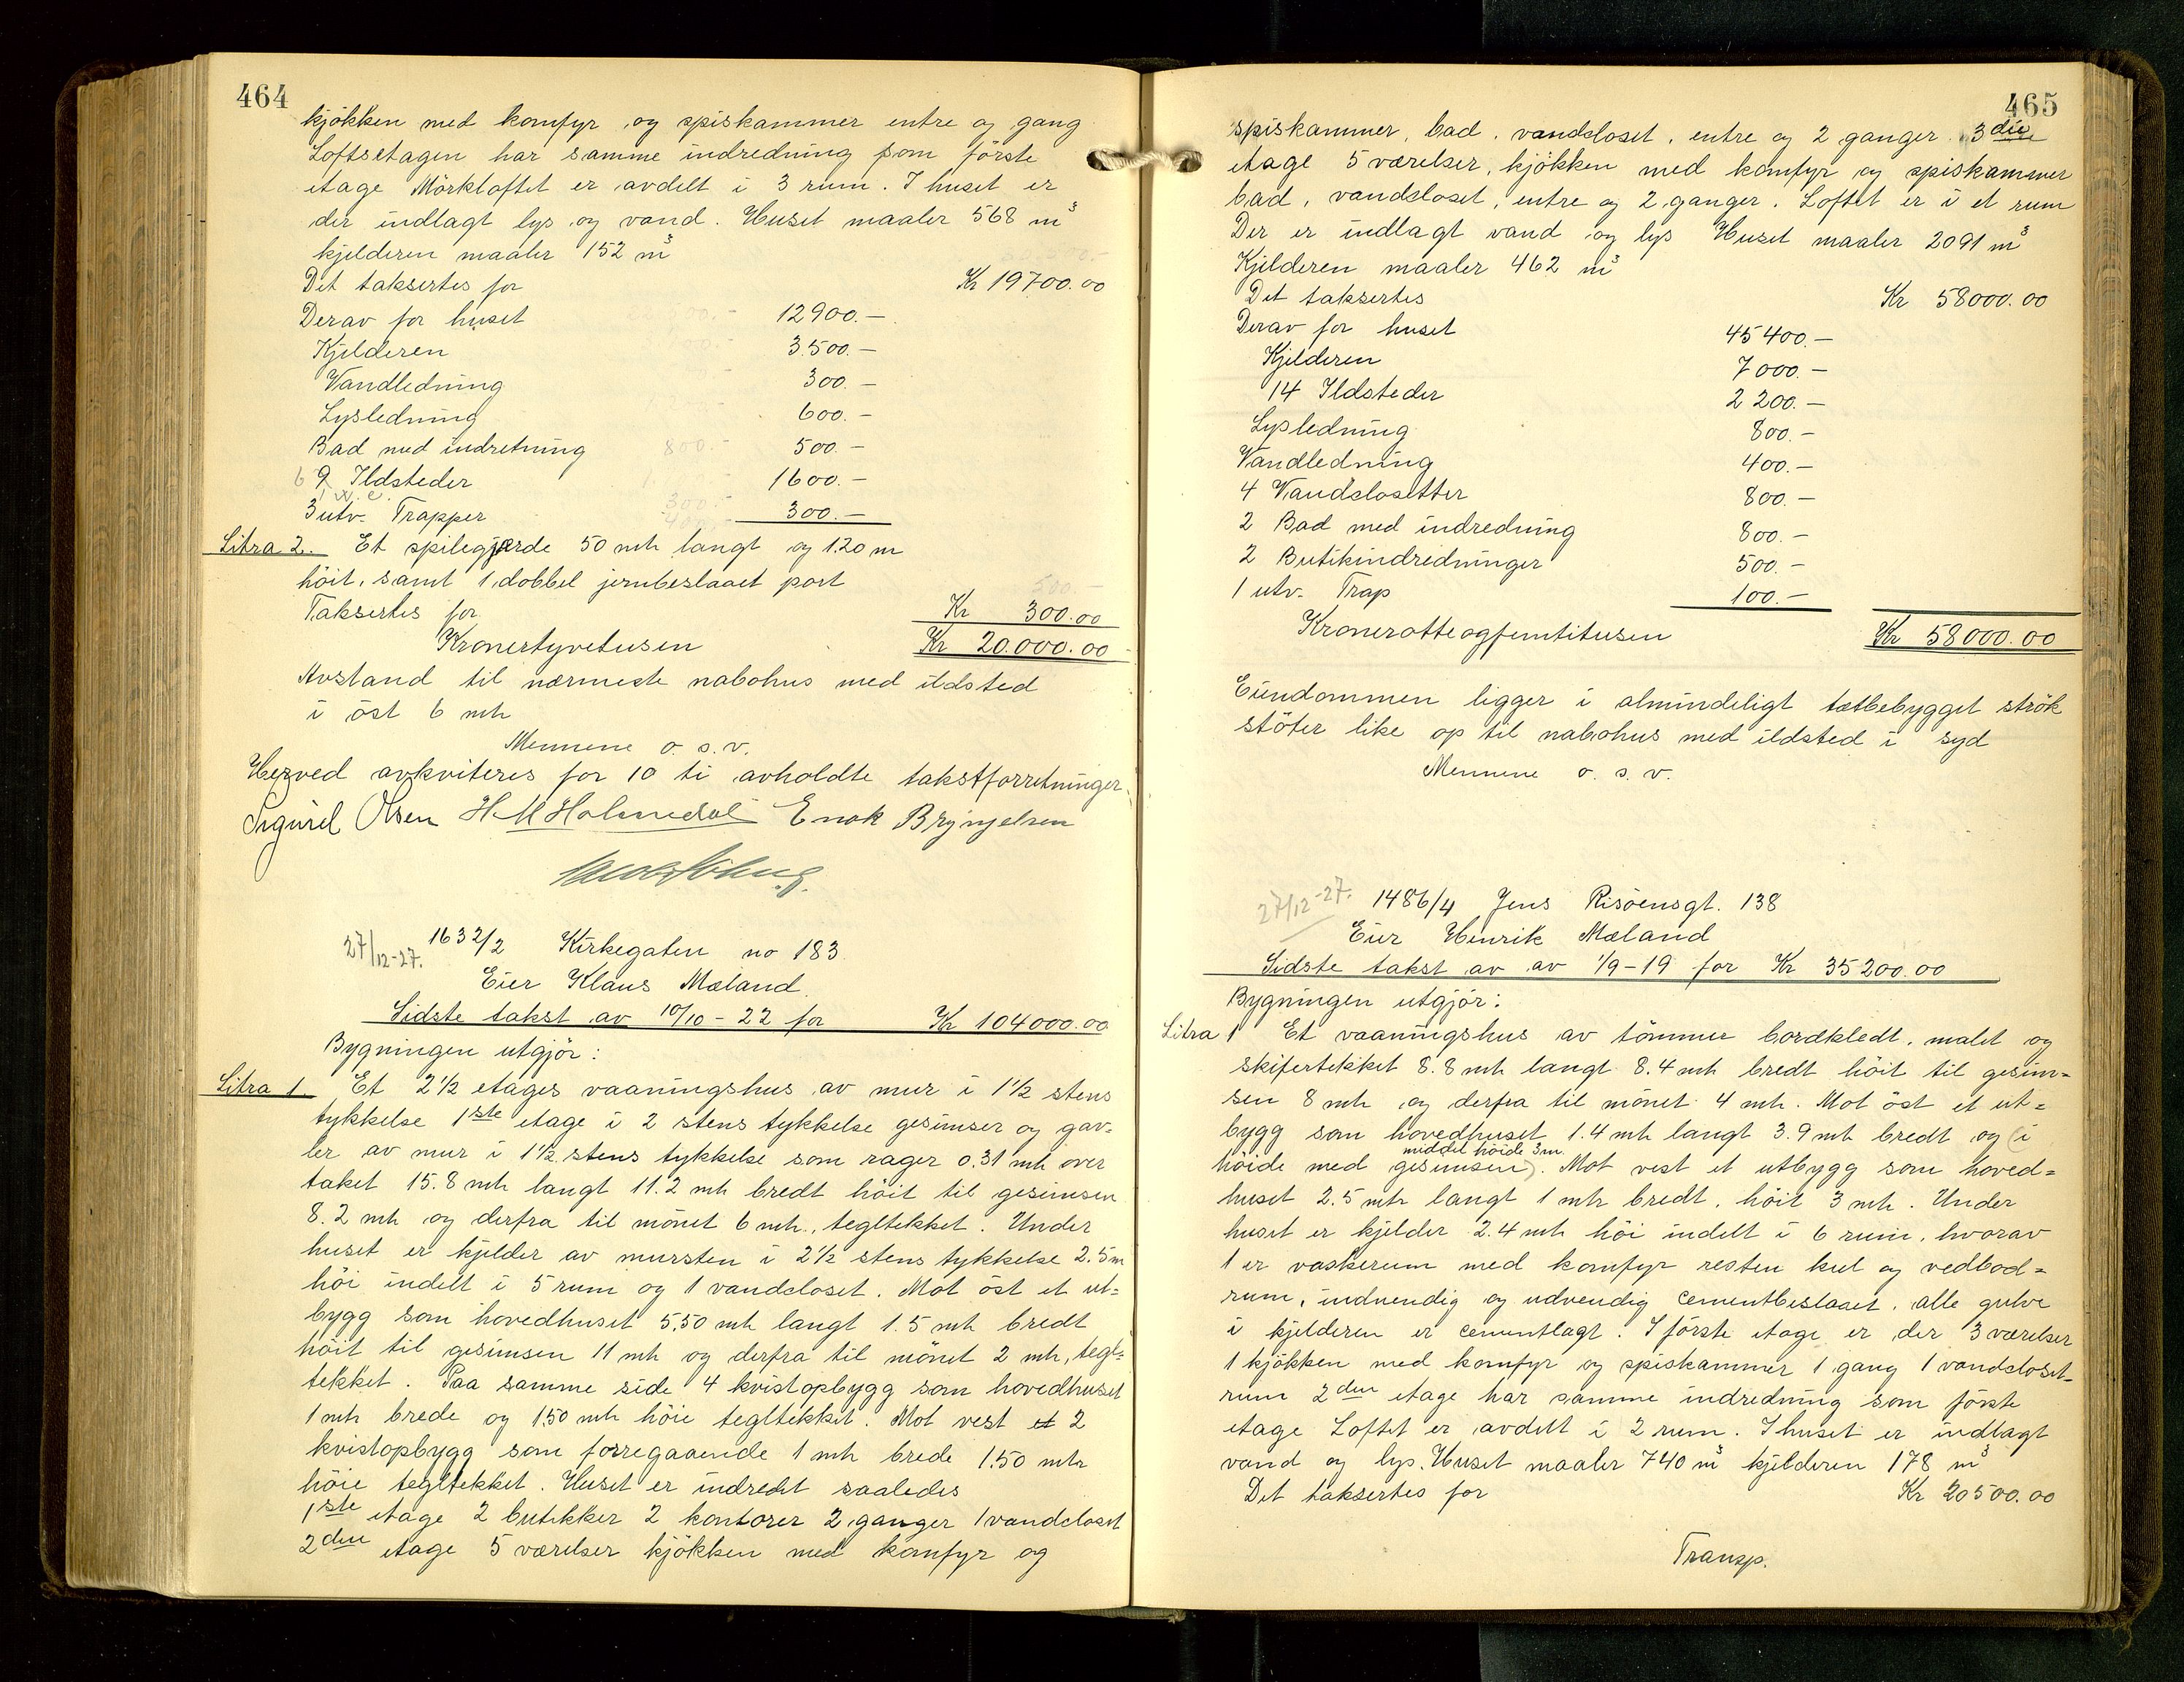 464
kjökken med komfyr og spiskammer entre og gang
Loftsetagen har samme indredning som förste
etage Mörkloftet er avdelt i 3 rum. I huset er
der indlagt lys og vand. Huset maaler 568 m³
kjelderen maaler 152 m³
Det taksertes for Kr 19700.00
Derav for huset 12900.—
Kjelderen 3.500.—
Vandledning 300.—
Lysledning 600.—
Bad med indretning 500.—
9 Ildsteder 1600.—
W.C.
3 utv. Trapper 300.—
Litra 2. Et spilegjærde 50 mtr langt og 1.20 m
höit, samt 1 dobbel jernbeslaaet port
Taksertes for Kr 300.00
Kronertyvetusen Kr 20.000.00
Avstand til nærmeste nabohus med ildsted
i öst 6 mtr
Mennene o. s. v.
Herved avkviteres for 10 ti avholdte takstforretninger.
Sigurd Olsen H M Holmedal Enok Brynjelsen
27/12-27. 1632/2 Kirkegaten no 183
Eier Klaus Mæland
Sidste takst av 10/10-22 for Kr 104000.00
Bygningen utgjör:
Litra 1. Et 2½ etages vaaningshus av mur i 1½ stens
tykkelse 1ste etage i 2 stens tykkelse gesimser og gav-
ler av mur i 1½ stens tykkelse som rager 0.31 mtr over
taket 15.8 mtr langt 11.2 mtr bredt höit til gesimsen
8.2 mtr og derfra til mönet 6 mtr., tegltekket. Under
huset er kjelder av mursten i 2½ stens tykkelse 2.5 m
höi indelt i 5 rum og 1 vandcloset. Mot öst et ut=
bygg som hovedhuset 5.50 mtr langt 1.5 mtr bredt
höit til gesimsen 11 mtr og derfra til mönet 2 mtr, tegl=
tekket. Paa samme side 4 kvistopbygg som hovedhuset
1 mtr brede og 1.50 mtr höie tegltekket. Mot vest et 2
kvistopbygg som forregaaende 1 mtr brede 1.50 mtr
höie tegltekket. Huset er indredet saaledes
1ste etage 2 butikker 2 kontorer 2 ganger 1 vandcloset
2den etage 5 værelser kjökken med komfyr og
465
spiskammer, bad, vandcloset, entre og 2 ganger 3die
etage 5 værelser, kjökken med komfyr og spiskammer
bad, vandcloset, entre og 2 ganger. Loftet er i et rum
Der er indlagt vand og lys Huset maaler 2091 m³
Kjelderen maaler 462 m³
Det taksertes Kr 58000.00
Derav for huset 45400.—
Kjelderen 7000.—
14 Ildsteder 2200.—
Lysledning 800.—
Vandledning 400.—
4 Vandclosetter 800.—
2 Bad med indredning 800.—
2 Butikindredninger 500.—
1 utv. Trap 100.—
Kronerotteogfemtitusen Kr 58000.00
Eiendommen ligger i almindeligt tætbebygget strök
stöter like op til nabohus med ildsted i syd
Mennene o. s. v.
27/12-27. 1486/4 Jens Risöensgt. 138
Eier Henrik Mæland
Sidste takst av av 1/9-19 for Kr 35200.00
Bygningen utgjör:
Litra 1 Et vaaningshus av tömmer bordkledt, malet og
skifertekket 8.8 mtr langt 8.4 mtr bredt höit til gesim=
sen 8 mtr og derfra til mönet 4 mtr. Mot öst et ut=
bygg som hovedhuset 1.4 mtr langt 3.9 mtr bredt og (i
middel höide 3 m.
höide med gesimsen). Mot vest et utbygg som hoved=
huset 2.5 mtr langt 1 mtr bredt, höit 3 mtr. Under
huset er kjelder 2.4 mtr höi indelt i 6 rum, hvorav
1 er vaskerum med komfyr resten kul og vedbod=
rum, indvendig og udvendig cementbeslaaet, alle gulve
i kjelderen er cementlagt. I förste etage er der 3 værelser
1 kjökken med komfyr og spiskammer 1 gang 1 vandcloset-
rum 2den etage har samme indredning som förste
etage Loftet er avdelt i 2 rum. I huset er indlagt
vand og lys. Huset maaler 740 m³ kjelderen 178 m³
Det taksertes for Kr 20500.00
Transp.